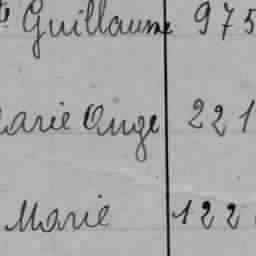 te Guillaume 975
arie Ange 221
Marie 122